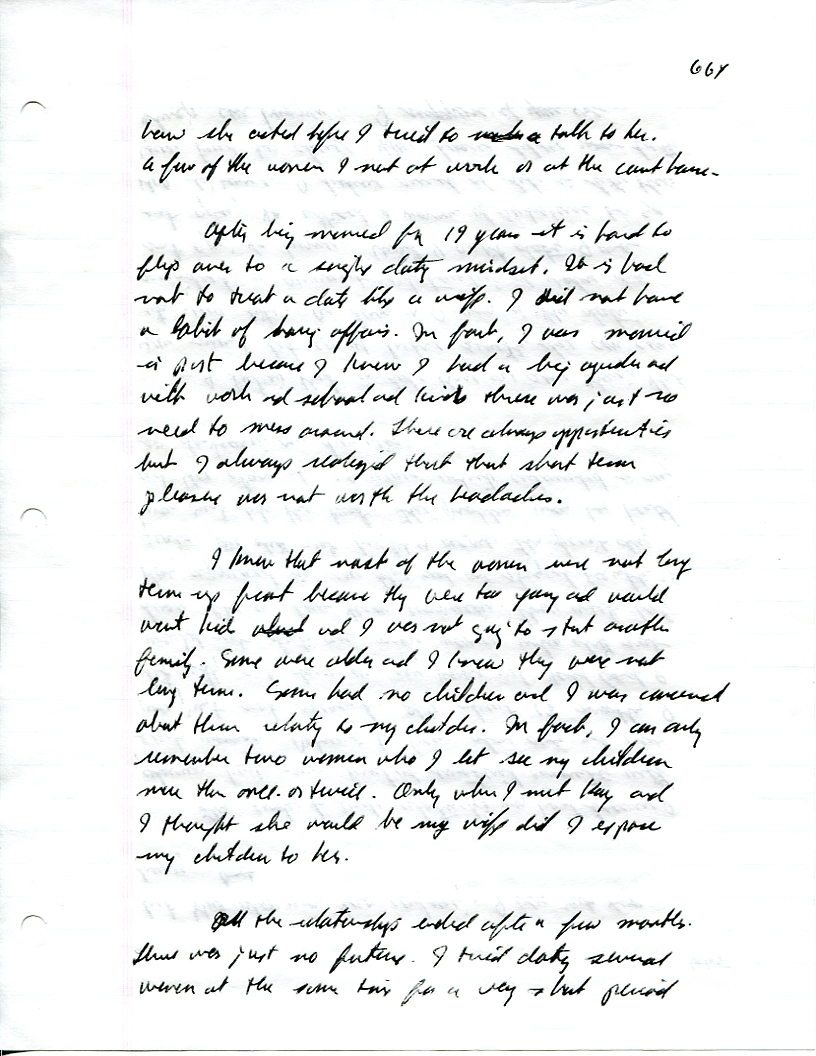 664
how she acted before I tried to talk to her.
A few of the women I met at work or at the court house.
After being married for 19 years it is hard to
flip over to a single dating mindset. It is hard
not to treat a date like a wife. I did not have
a habit of having affairs. In fact, I was married
in part because I knew I had a big agenda and
with work and school and kids there was just no
need to mess around. There are always opportunities
but I always realized that that short term
pleasure was not worth the headaches.
I knew that most of the women were not long
term up front because they were too young and would
want kid and I was not going to start another
family. Some were older and I knew they were not
long term. Some had no children and I was concerned
about them relating to my children. In fact, I can only
remember two women who I let see my children
more than once or twice. Only when I met Kay and
I thought she would be my wife did I expose
my children to her.
All the relationships ended after a few months.
There was just no future. I tried dating several
women at the same time for a very short period